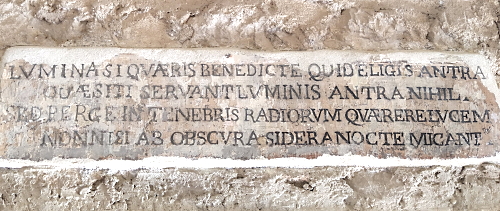 LVMINA SI QVÆRIS BENEDICTE QVID ELIGIS ANTRA
QVÆSITI SERVANT LVMINIS ANTRA NIHIL
SED PERGE IN TENEBRIS RADIORVM QVÆRERE LVCEM
NONNISI AB OBSCVRA SIDERA NOCTE MICANT